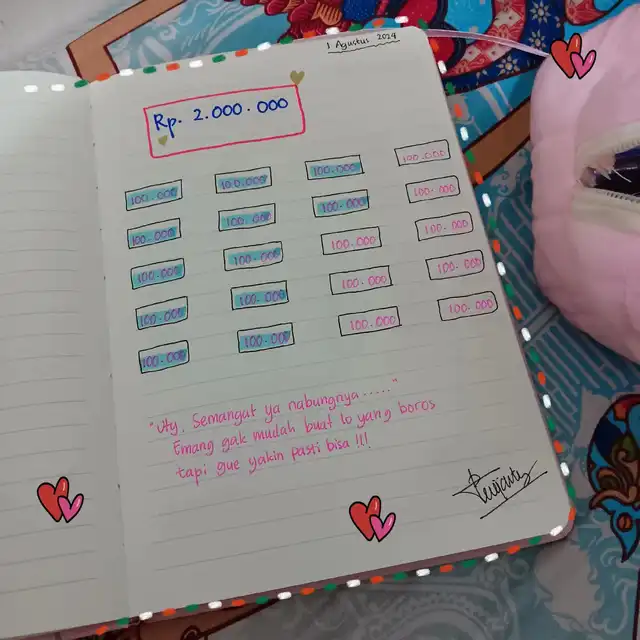 1 Agustus 2024
Rp. 2.000.000
100.000 100.000 100.000 100.000
100.000 100.000 100.000 100.000
100.000 100.000 100.000 100.000
100.000 100.000 100.000 100.000
100.000 100.000 100.000 100.000
"Uty, Semangat ya nabungnya ....."
Emang gak mudah buat lo yang boros
tapi gue yakin pasti bisa !!!